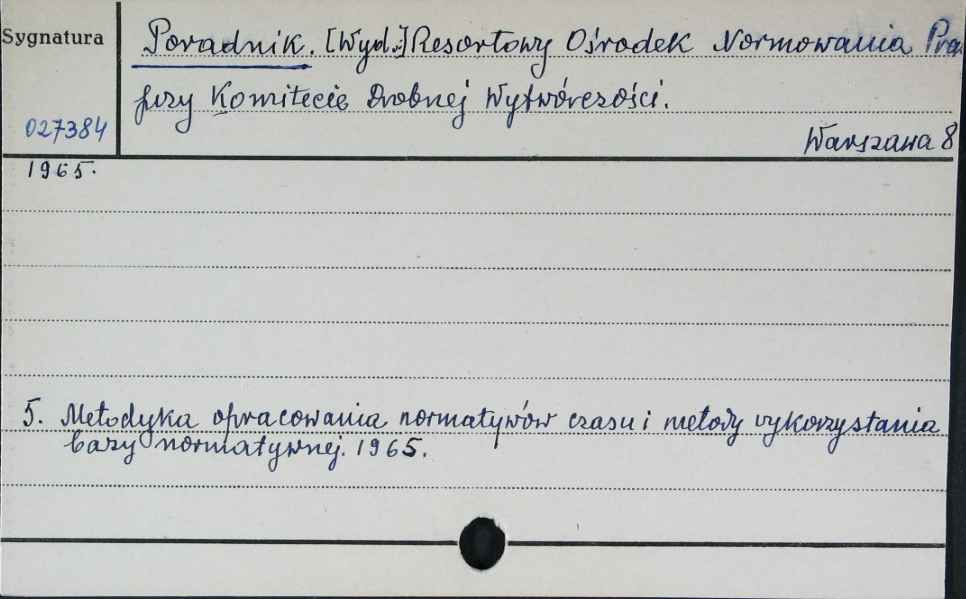 Sygnatura
Poradnik. [Wyd.:] Resortowy Ośrodek Normowania Pra
przy Komitecie Drobnej Wytwórczości.
027384
Warszawa 8
1965.
5. Metodyka opracowania normatywów czasu i metody wykorzystania
bazy normatywnej. 1965.